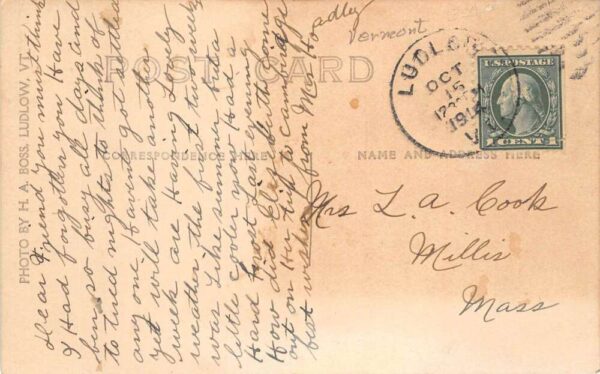 POST CARD
CORRESPONDENCE HERE
NAME AND ADDRESS HERE
PHOTO BY H. A. BOSS. LUDLOW, VT.
Vermont
LUDLOW
OCT
15
VT.
U.S. POSTAGE
1 CENT 1
Mrs L. A. Cook
Millis
Mass
Dear Friend you must think
I Had forgotten you Have
ben so busy all days and
to tired nights to think of
any one, Havent got settled
yet will take another
week are Having Lovely
weather the first two weeks
was Like summer bit a
little cooler now Had a
Hard frost Last evening
How did Clay but come
out on Her trip to cambridge
best wishes from Mrs Hoadley